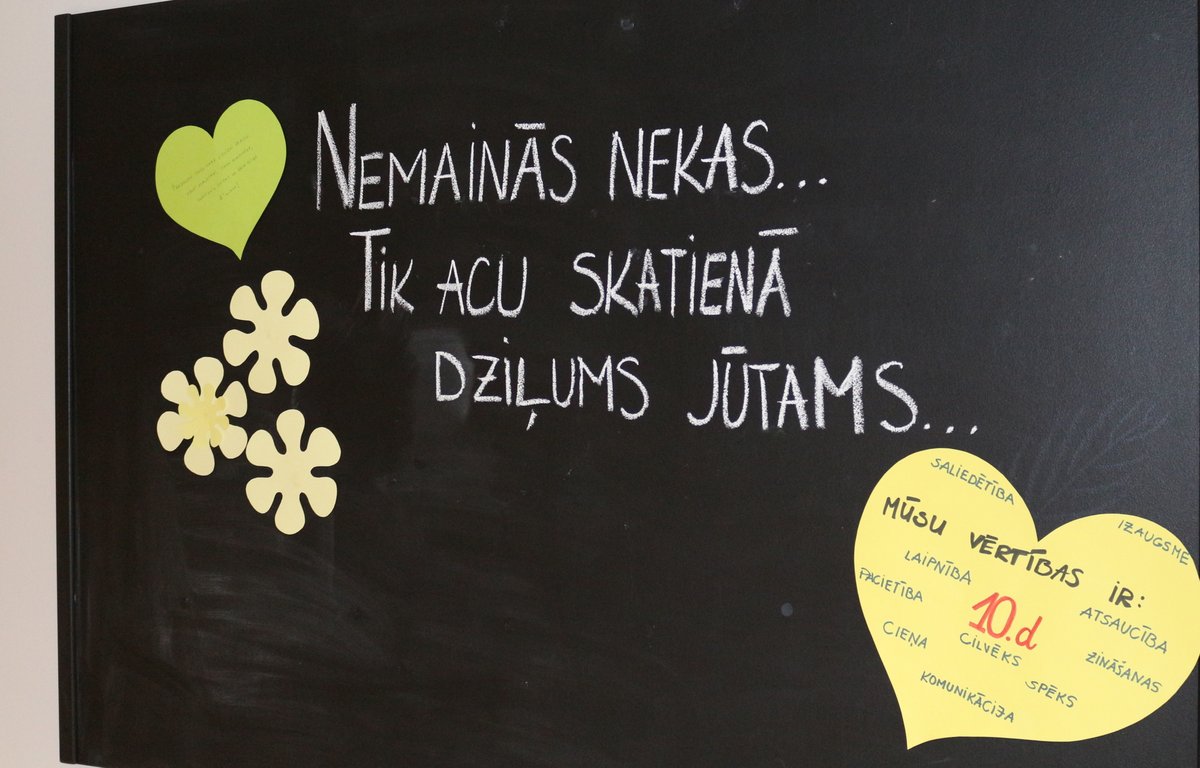 NEMAINĀS NEKAS...
TIK ACU SKATIENĀ
DZIĻUMS JŪTAMS...
SALIEDĒTĪBA
IZAUGSME
MŪSU VĒRTĪBAS IR:
LAIPNĪBA
PACIETĪBA
10.d
ATSAUCĪBA
CIEŅA
CILVĒKS
ZINĀŠANAS
SPĒKS
KOMUNIKĀCIJA